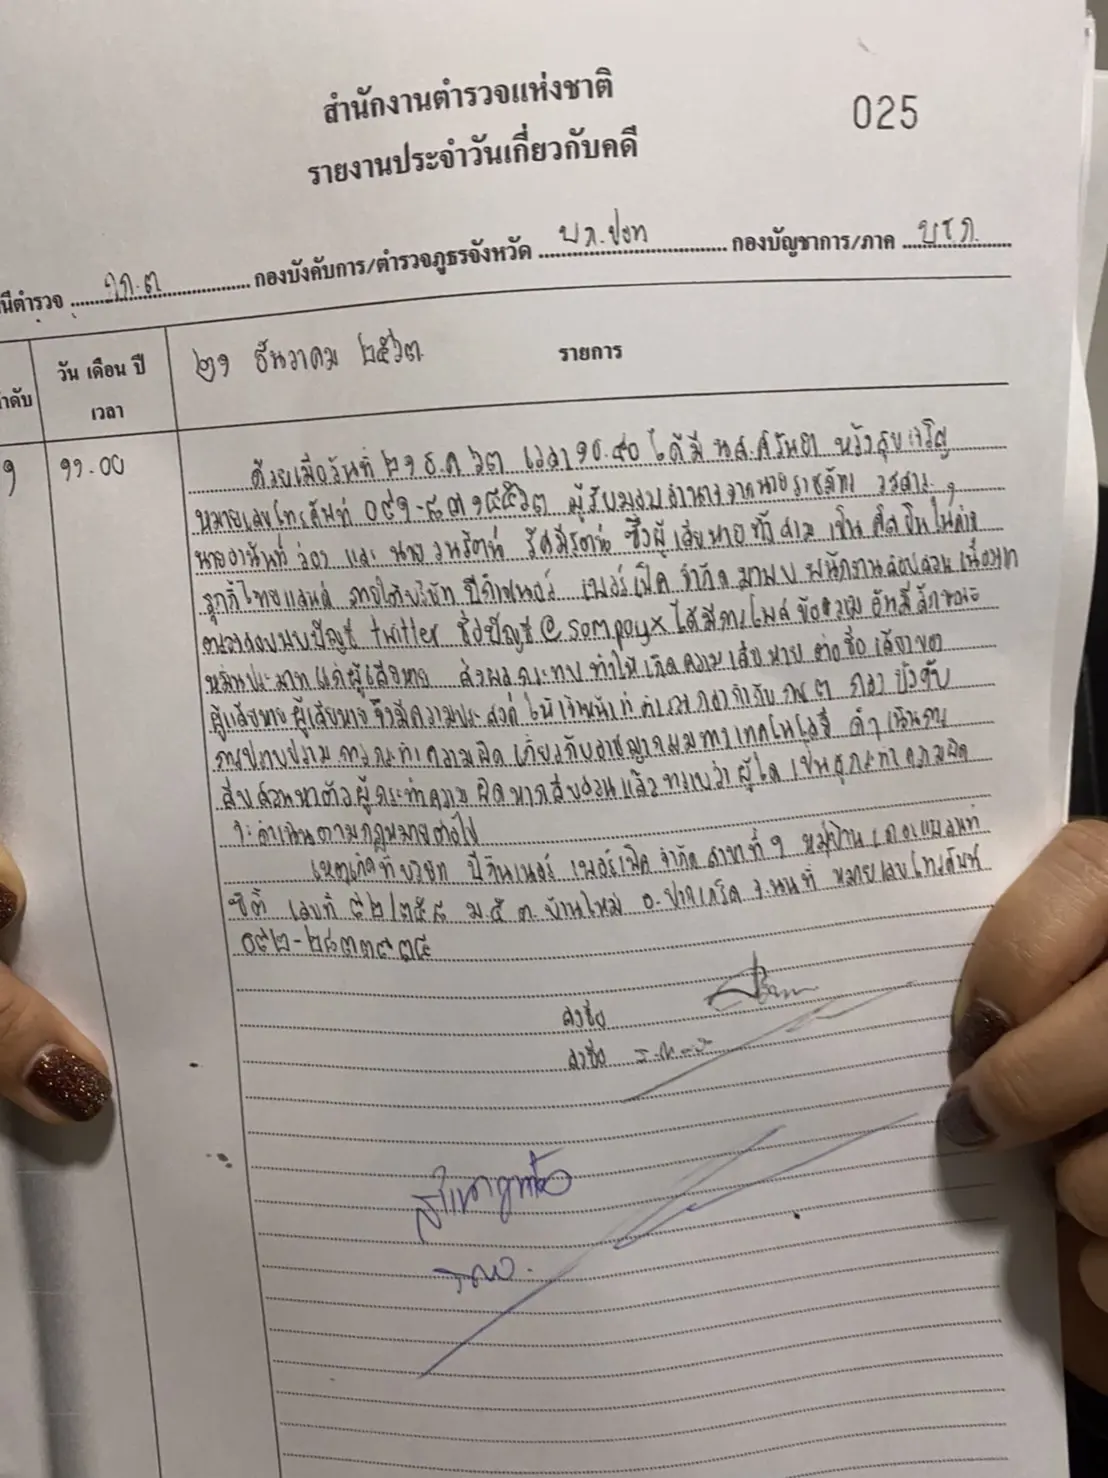 สำนักงานตำรวจแห่งชาติ
025
รายงานประจำวันเกี่ยวกับคดี
นีตำรวจ กองบังคับการ/ตำรวจภูธรจังหวัด กองบัญชาการ/ภาค
ำดับ
วัน เดือน ปี
เวลา
๒๑ ธันวาคม ๒๕๖๓
รายการ
๑
๑๑.๐๐
ด้วยเมื่อวันที่ ๒๑ ธ.ค ๖๓ เวลา ๑๐.๔๐ ได้มี นส.ศรันยา หวังสุขเจริญ
หมายเลขโทรศัพท์ ผู้รับมอบอำนาจจากนาย
นายอานันท์ ว่อง และ นาย รัศมีรัตน์ ซึ่งผู้เสียหายทั้งสาม เป็น ศิลปินในค่าย
รุกกี้ไทยแลนด์ ภายใต้บริษัท บีกินเนอร์ เพอร์เฟค จำกัด มาพบ พนักงานสอบสวน เนื่องจาก
ตรวจสอบพบบัญชี twitter ชื่อบัญชี @sompoyx ได้มีการโพสข้อความ อันมีลักษณะ
หมิ่นประมาท แก่ผู้เสียหาย ส่งผลกระทบ ทำให้เกิดความเสียหาย ต่อชื่อเสียงของ
ผู้เสียหาย ผู้เสียหายจึงมีความประสงค์ ให้เจ้าหน้าที่ตำรวจ กองกำกับการ ๓ กองบังคับ
การปราบปราม การกระทำความผิด เกี่ยวกับอาชญากรรมทางเทคโนโลยี ดำเนินการ
สืบสวนหาตัวผู้กระทำความผิด หากสืบสวนแล้วทราบว่าผู้ใด เป็นผู้กระทำความผิด
จะดำเนินตามกฎหมายต่อไป
เหตุเกิดที่ บริษัท บีกินเนอร์ เพอร์เฟค จำกัด สาขาที่ ๑ หมู่บ้าน
ซิตี้ เลขที่ ม.๕ ต.บ้านใหม่ อ.ปากเกร็ด จ.นนท์ หมายเลขโทรศัพท์
ลงชื่อ
ลงชื่อ
สำเนาถูกต้อง